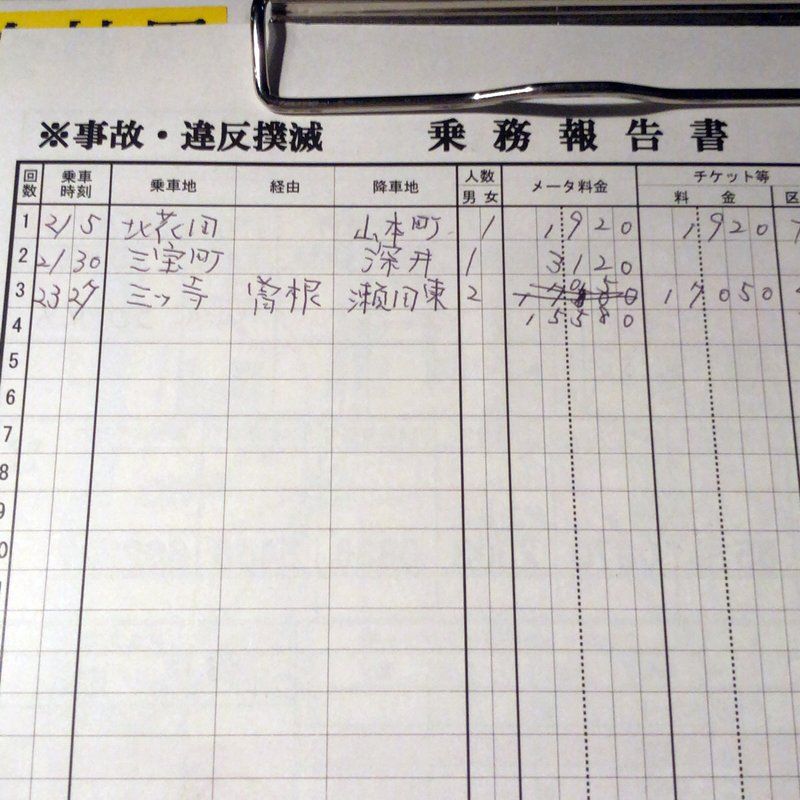 ※事故・違反撲滅 乗務報告書
回数 乗車時刻 乗車地 経由 降車地 人数 男 女 メータ料金 チケット等 料金 区
1 21 5 北花田 山本町 1 1920 1920
2 21 30 三宝町 深井 1 3120
3 23 27 三ッ寺 曽根 瀬田東 2 17050
4 15580
5
6
7
8
9
0